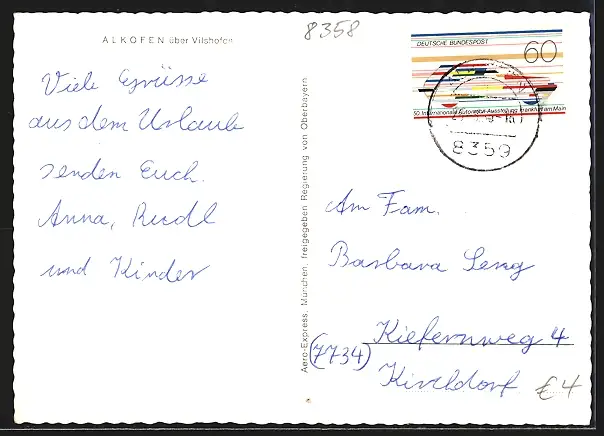 8358
ALKOFEN über Vilshofen
DEUTSCHE BUNDESPOST
60
50. Internationale Automobil-Ausstellung Frankfurt am Main
8359
Viele Grüsse
aus dem Urlaub
senden Euch.
Anna, Rudl
und Kinder
Aero-Express, München, freigegeben Regierung von Oberbayern
Am Fam.
Barbara Leng
Kiefernweg 4
(7734)
Kirchdorf
€4